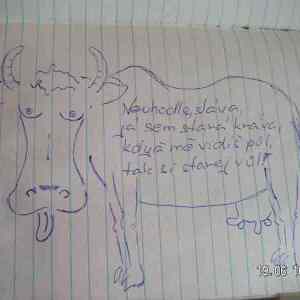 Neuhodla, sláva,
já sem stará kráva,
když mě vidíš půl,
tak si starej vůl!
19.06